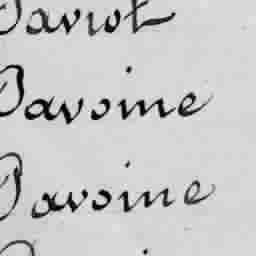 Daviot
Davoine
Davoine